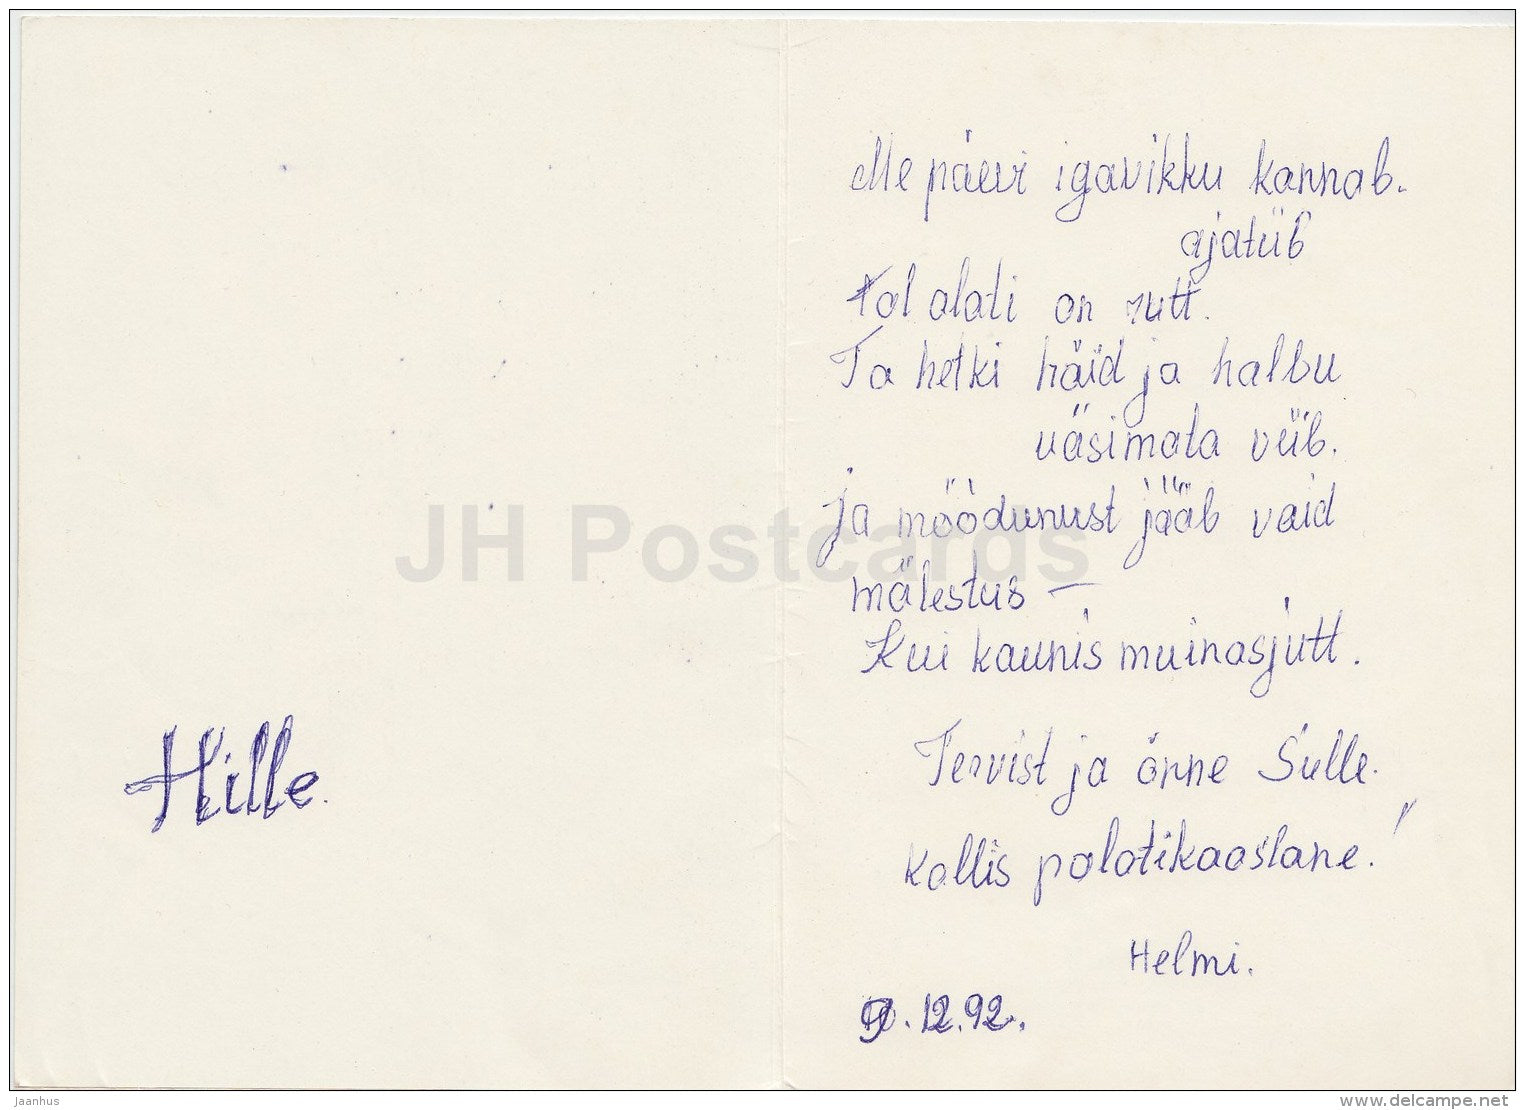 Hille.
Me päevi igavikku kannab.
ajatiib
tal alati on rutt.
Ta hetki häid ja halbu
väsimata viib.
ja möödunust jääb vaid
mälestus –
Kui kaunis muinasjutt.
Tervist ja õnne Sulle.
kallis palatikaaslane!
Helmi.
12.92.
JH Postcards
Jaanhus
www.delcampe.net